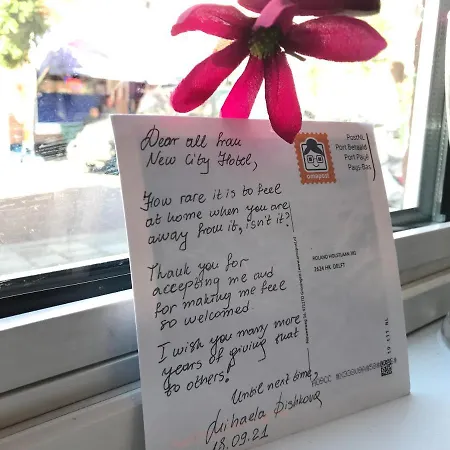 Dear all frau
New City Hotel,
How rare it is to feel
at home when you are
away from it, isn't it?
Thank you for
accepting me and
for making me feel
so welcomed.
I wish you many more
years of giving that
to others!
Until next time,
Mihaela Dishkova
18.09.21
PostNL
Port Betaald
Port Payé
Pays-Bas
omapost
ROLAND HOLSTLAAN 391
2624 HK DELFT